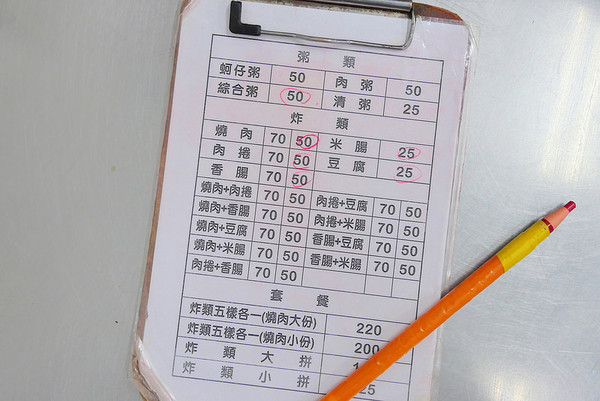 粥 類
蚵仔粥 50 肉粥 50
綜合粥 50 清粥 25
炸 類
燒肉 70 50 米腸 25
肉捲 70 50 豆腐 25
香腸 70 50
燒肉+肉捲 70 50 肉捲+豆腐 70 50
燒肉+香腸 70 50 肉捲+米腸 70 50
燒肉+豆腐 70 50 香腸+豆腐 70 50
燒肉+米腸 70 50 香腸+米腸 70 50
肉捲+香腸 70 50
套 餐
炸類五樣各一(燒肉大份) 220
炸類五樣各一(燒肉小份) 200
炸類大拼
炸類小拼